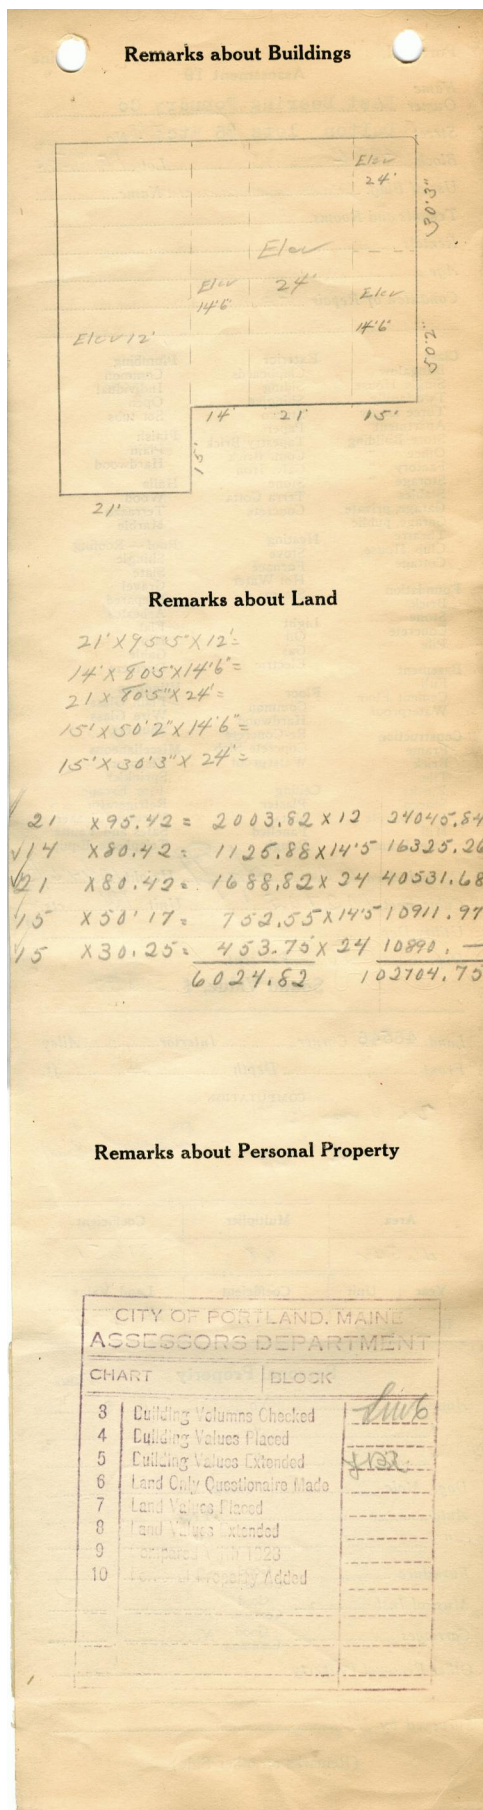 Remarks about Buildings
Elev
24'
30'3"
Elev
24'
Elev
14'6"
Elev
14'6"
Elev 12'
50'2"
14' 21' 15'
15'
21'
Remarks about Land
21' X 95'5" X 12' =
14' X 80'5" X 14'6" =
21 X 80'5" X 24' =
15' X 50'2" X 14'6" =
15' X 30'3" X 24' =
21 X 95.42 = 2003.82 X 12 24045.84
√14 X 80.42 = 1125.88 X 14'5 16325.26
√21 X 80.42 = 1688.82 X 24 40531.68
√15 X 50'17 = 752.55 X 14'5 10911.97
√15 X 30.25 = 453.75 X 24 10890.—
6024.82 102704.75
Remarks about Personal Property
CITY OF PORTLAND, MAINE
ASSESSORS DEPARTMENT
CHART BLOCK
3 Building Volumns Checked
4 Building Values Placed
5 Building Values Extended
6 Land Only Questionaire Made
7 Land Values Placed
8 Land Values Extended
9 Compared With 1923
10 Personal Property Added